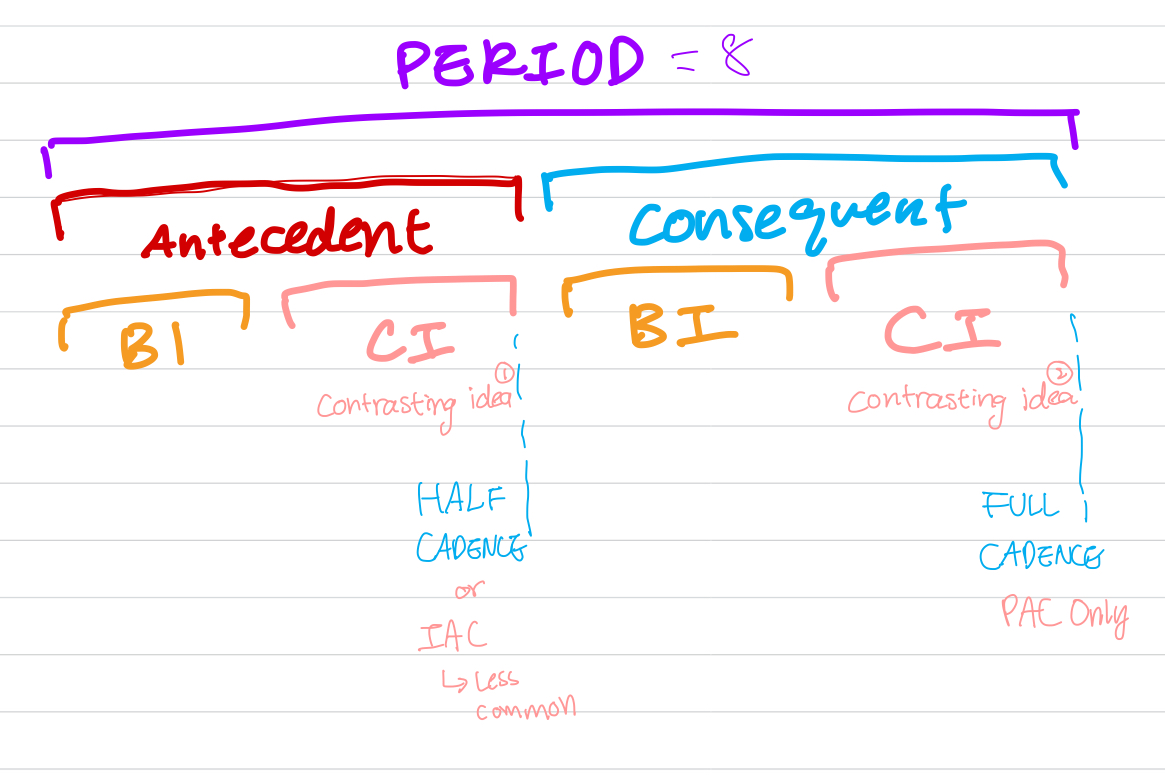 PERIOD = 8
Antecedent
Consequent
BI
CI
BI
CI
①
Contrasting idea
②
Contrasting idea
HALF
CADENCE
or
IAC
↳ Less
common
FULL
CADENCE
PAC Only